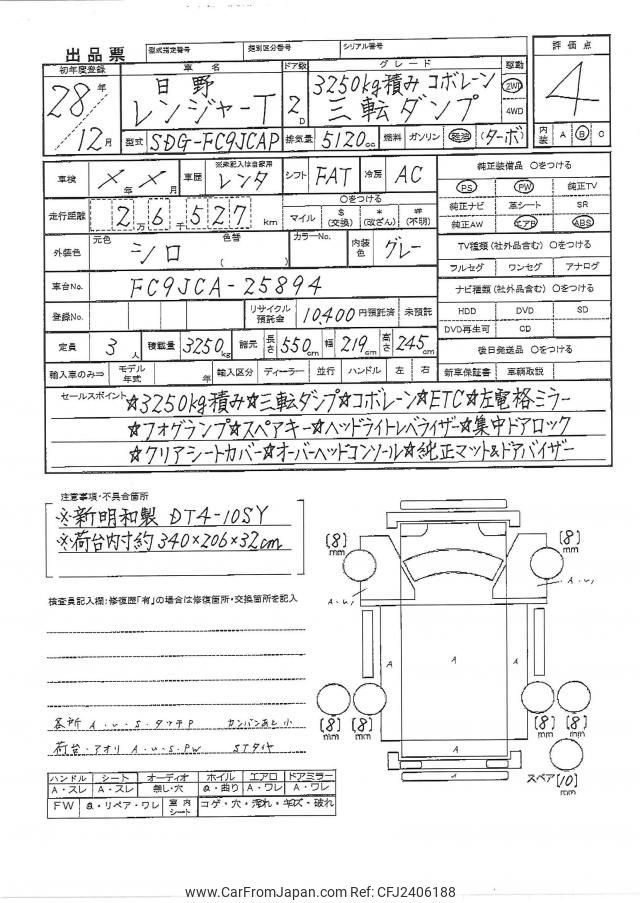 出品票
型式指定番号 類別区分番号 シリアル番号
初年度登録 車名 ドア数 グレード 駆動 評価点
28年 日野 2D 3250kg積み コボレーン 2WD 4
レンジャーT 三転ダンプ 4WD
12月 型式 SDG-FC9JCAP 排気量 5120cc 燃料 ガソリン 軽油 (ターボ) 内装 A B C
車検 ×年×月 車歴 ※未記入は自家用 レンタ シフト FAT 冷房 AC 純正装備品 ○をつける
PS PW 純正TV
走行距離 2万6千527km ○をつける マイル $(交換) *(改ざん) #(不明) 純正ナビ 革シート SR
純正AW エアB ABS
外装色 元色 シロ 色替 ( ) カラーNo. 内装色 グレー TV種類(社外品含む) ○をつける
フルセグ ワンセグ アナログ
車台No. FC9JCA-25894 ナビ種類(社外品含む) ○をつける
登録No. リサイクル預託金 10,400円預託済 未預託 HDD DVD SD
DVD再生可 CD
定員 3人 積載量 3250kg 諸元 長さ 550cm 幅 219cm 高さ 245cm 後日発送品 ○をつける
輸入車のみ⇒ モデル年式 年 輸入区分 ディーラー 並行 ハンドル 左 右 新車保証書 車輌取説
セールスポイント ☆3250kg積み☆三転ダンプ☆コボレーン☆ETC☆左電格ミラー
☆フォグランプ☆スペアキー☆ヘッドライトレベライザー☆集中ドアロック
☆クリアシートカバー☆オーバーヘッドコンソール☆純正マット&ドアバイザー
注意事項・不具合箇所
※新明和製 DT4-10SY
※荷台内寸約340×206×32cm
検査員記入欄:修復歴「有」の場合は修復箇所・交換箇所を記入
各所 A・U・S・タッチP カンバンあと小
荷台・アオリ A・U・S・PW STタイヤ
[8]mm [8]mm
A・U1 A・U1
A A A
[8]mm [8]mm [8]mm [8]mm
A
スペア [10]mm
ハンドル シート オーディオ ホイル エアロ ドアミラー
A・スレ A・スレ 無し・穴 a・曲り A・ワレ A・ワレ
FW a・リペア・ワレ 室内シート コゲ・穴・汚れ・キズ・破れ
www.CarFromJapan.com Ref: CFJ2406188